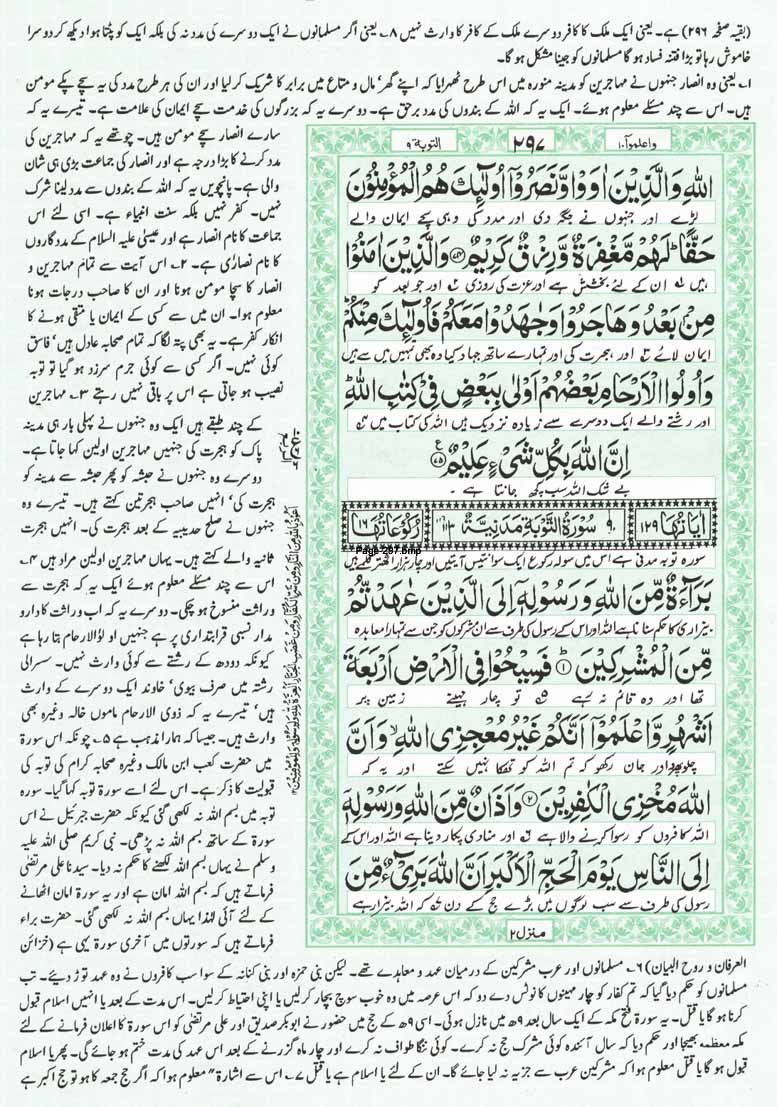 (بقیہ صفحہ ۲۹۶) ہے۔ یعنی ایک ملک کا کافر دوسرے ملک کے کافر کا وارث نہیں ۸۔ یعنی اگر مسلمانوں نے ایک دوسرے کی مدد نہ کی بلکہ ایک کو پٹتا ہوا دیکھ کر دوسرا
خاموش رہا تو بڑا فتنہ فساد ہو گا مسلمانوں کو جینا مشکل ہو گا۔
۱۔ یعنی وہ انصار جنہوں نے مہاجرین کو مدینہ منورہ میں اس طرح ٹھہرایا کہ اپنے گھر' مال و متاع میں برابر کا شریک کر لیا اور ان کی ہر طرح مدد کی یہ سچے پکے مومن
ہیں۔ اس سے چند مسئلے معلوم ہوئے۔ ایک یہ کہ اللہ کے بندوں کی مدد برحق ہے۔ دوسرے یہ کہ بزرگوں کی خدمت سچے ایمان کی علامت ہے۔ تیسرے یہ کہ
سارے انصار سچے مومن ہیں۔ چوتھے یہ کہ مہاجرین کی
مدد کرنے کا بڑا درجہ ہے اور انصار کی جماعت بڑی ہی شان
والی ہے۔ پانچویں یہ کہ اللہ کے بندوں سے مدد لینا شرک
نہیں۔ کفر نہیں بلکہ سنت انبیاء ہے۔ اسی لئے اس
جماعت کا نام انصار ہے اور عیسیٰ علیہ السلام کے مددگاروں
کا نام نصاریٰ ہے۔ ۲۔ اس آیت سے تمام مہاجرین و
انصار کا سچا مومن ہونا اور ان کا صاحب درجات ہونا
معلوم ہوا۔ ان میں سے کسی کے ایمان یا متقی ہونے کا
انکار کفر ہے۔ یہ بھی پتہ لگا کہ تمام صحابہ عادل ہیں' فاسق
کوئی نہیں۔ اگر کسی سے کوئی جرم سرزد ہو گیا تو توبہ
نصیب ہو جاتی ہے اس پر باقی نہیں رہتے ۳۔ مہاجرین
کے چند طبقے ہیں ایک وہ جنہوں نے پہلی بار ہی مدینہ
پاک کو ہجرت کی جنہیں مہاجرین اولین کہا جاتا ہے۔
دوسرے وہ جنہوں نے حبشہ کو پھر حبشہ سے مدینہ کو
ہجرت کی' انہیں صاحب ہجرتین کہتے ہیں۔ تیسرے وہ
جنہوں نے صلح حدیبیہ کے بعد ہجرت کی۔ انہیں ہجرت
ثانیہ والے کہتے ہیں۔ یہاں مہاجرین اولین مراد ہیں ۴۔
اس سے چند مسئلے معلوم ہوئے ایک یہ کہ ہجرت سے
وراثت منسوخ ہو چکی۔ دوسرے یہ کہ اب وراثت کا دارو
مدار نسبی قرابتداری پر ہے جنہیں اولوالارحام بتا رہا ہے
کیونکہ دودھ کے رشتے سے کوئی وارث نہیں۔ سسرالی
رشتہ میں صرف بیوی' خاوند ایک دوسرے کے وارث
ہیں' تیسرے یہ کہ ذوی الارحام ماموں خالہ وغیرہ بھی
وارث ہیں۔ جیسا کہ ہمارا مذہب ہے ۵۔ چونکہ اس سورۃ
میں حضرت کعب ابن مالک وغیرہ صحابہ کرام کی توبہ کی
قبولیت کا ذکر ہے۔ اس لئے اسے سورۃ توبہ کہا گیا۔ سورہ
توبہ میں بسم اللہ نہ لکھی گئی کیونکہ حضرت جبرئیل نے اس
سورۃ کے ساتھ بسم اللہ نہ پڑھی۔ نبی کریم صلی اللہ علیہ
وسلم نے یہاں بسم اللہ لکھنے کا حکم نہ دیا۔ سیدنا علی مرتضیٰ
فرماتے ہیں کہ بسم اللہ امان ہے اور یہ سورۃ امان اٹھانے
کے لئے آئی لہٰذا یہاں بسم اللہ نہ لکھی گئی۔ حضرت براء
فرماتے ہیں کہ سورتوں میں آخری سورۃ یہی ہے (خزائن
واعلموآ۱۰ ۲۹۷ التوبۃ ۹
اللّٰهِ وَالَّذِيْنَ اٰوَوْا وَّنَصَرُوْٓا اُولٰٓئِكَ هُمُ الْمُؤْمِنُوْنَ
لڑے اور جنہوں نے جگہ دی اور مدد کی وہی سچے ایمان والے
حَقًّا ؕ لَهُمْ مَّغْفِرَةٌ وَّرِزْقٌ كَرِيْمٌ ﴿۷۴﴾ وَالَّذِيْنَ اٰمَنُوْا
ہیں ان کے لئے بخشش ہے اور عزت کی روزی اور جو بعد کو
مِنْۢ بَعْدُ وَهَاجَرُوْا وَجٰهَدُوْا مَعَكُمْ فَاُولٰٓئِكَ مِنْكُمْ ؕ
ایمان لائے اور ہجرت کی اور تمہارے ساتھ جہاد کیا وہ بھی تمہیں میں سے ہیں
وَاُولُوا الْاَرْحَامِ بَعْضُهُمْ اَوْلٰى بِبَعْضٍ فِيْ كِتٰبِ اللّٰهِ ؕ
اور رشتے والے ایک دوسرے سے زیادہ نزدیک ہیں اللہ کی کتاب میں
اِنَّ اللّٰهَ بِكُلِّ شَيْءٍ عَلِيْمٌ ﴿۷۵﴾
بے شک اللہ سب کچھ جانتا ہے۔
اٰيَاتُهَا ۱۲۹ ۹ سُوْرَةُ التَّوْبَةِ مَدَنِيَّةٌ ۱۱۳ رُكُوْعَاتُهَا ۱۶
Page-297.bmp
سورہ توبہ مدنی ہے اس میں سولہ رکوع ایک سو انتیس آیتیں اور چار ہزار اٹھتر کلمے ہیں
بَرَآءَةٌ مِّنَ اللّٰهِ وَرَسُوْلِهٖٓ اِلَى الَّذِيْنَ عٰهَدْتُّمْ
بیزاری کا حکم سنانا ہے اللہ اور اس کے رسول کی طرف سے ان مشرکوں کو جن سے تمہارا معاہدہ
مِّنَ الْمُشْرِكِيْنَ ﴿۱﴾ فَسِيْحُوْا فِي الْاَرْضِ اَرْبَعَةَ
تھا اور وہ قائم نہ رہے تو چار مہینے زمین پر
اَشْهُرٍ وَّاعْلَمُوْٓا اَنَّكُمْ غَيْرُ مُعْجِزِي اللّٰهِ ۙ وَاَنَّ
چلو پھرو اور جان رکھو کہ تم اللہ کو تھکا نہیں سکتے اور یہ کہ
اللّٰهَ مُخْزِي الْكٰفِرِيْنَ ﴿۲﴾ وَاَذَانٌ مِّنَ اللّٰهِ وَرَسُوْلِهٖٓ
اللہ کافروں کو رسوا کرنے والا ہے اور منادی پکار دینا ہے اللہ اور اس کے
اِلَى النَّاسِ يَوْمَ الْحَجِّ الْاَكْبَرِ اَنَّ اللّٰهَ بَرِيْٓءٌ مِّنَ
رسول کی طرف سے سب لوگوں میں بڑے حج کے دن کہ اللہ بیزار ہے
منزل۲
العرفان و روح البیان) ۶۔ مسلمانوں اور عرب مشرکین کے درمیان عہد و معاہدے تھے۔ لیکن بنی حمزہ اور بنی کنانہ کے سوا سب کافروں نے وہ عہد توڑ دیئے۔ تب
مسلمانوں کو حکم دیا گیا کہ تم کفار کو چار مہینوں کا نوٹس دے دو کہ اس عرصہ میں وہ خوب سوچ بچار کر لیں یا اپنی احتیاط کر لیں۔ اس مدت کے بعد یا انہیں اسلام قبول
کرنا ہو گا یا قتل۔ یہ سورۃ فتح مکہ کے ایک سال بعد ۹ھ میں نازل ہوئی۔ اسی ۹ھ کے حج میں حضور نے ابوبکر صدیق اور علی مرتضیٰ کو اس سورۃ کا اعلان فرمانے کے لئے
مکہ معظمہ بھیجا اور حکم دیا کہ سال آئندہ کوئی مشرک حج نہ کرے۔ کوئی ننگا طواف نہ کرے اور چار ماہ گزرنے کے بعد اس عہد کی مدت ختم ہو جائے گی۔ پھر یا اسلام
قبول ہو گا یا قتل معلوم ہوا کہ مشرکین عرب سے جزیہ نہ لیا جائے گا۔ ان کے لئے یا اسلام ہے یا قتل ۷۔ اس سے اشارۃً معلوم ہوا کہ اگر حج جمعہ کا ہو تو حج اکبر ہے